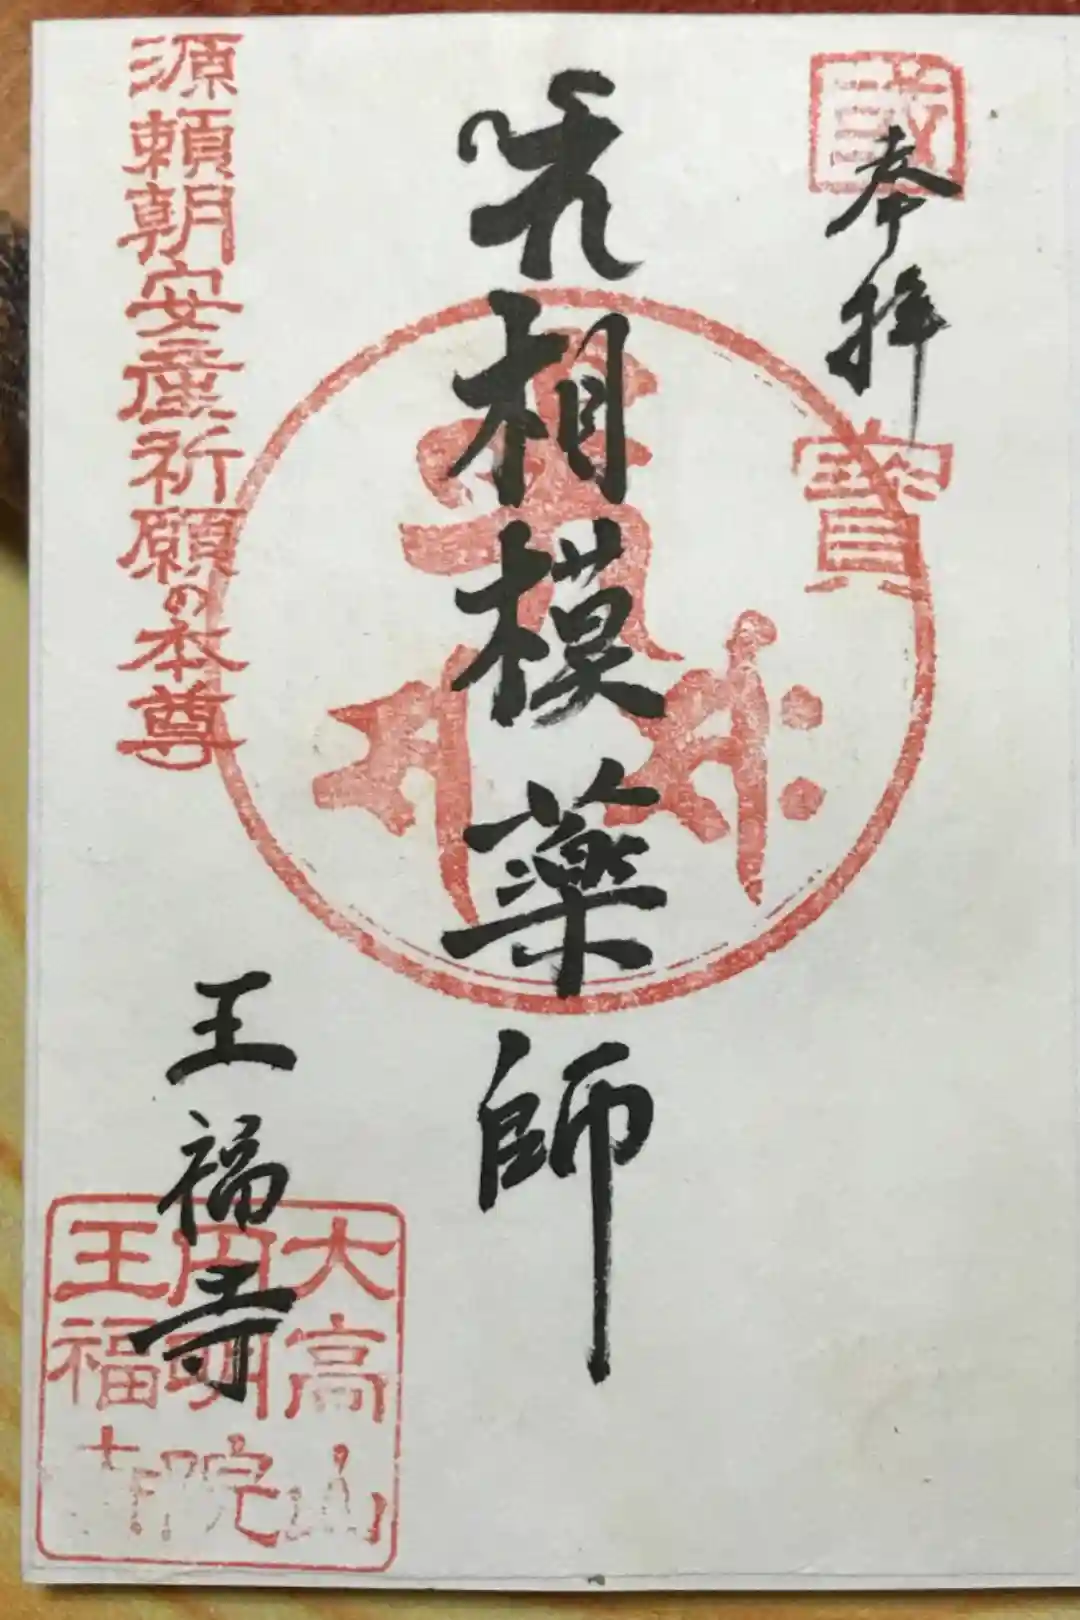 奉拝
誠
寶
相模薬師
源頼朝安産祈願の本尊
王福寺
大高山
円明院
王福寺